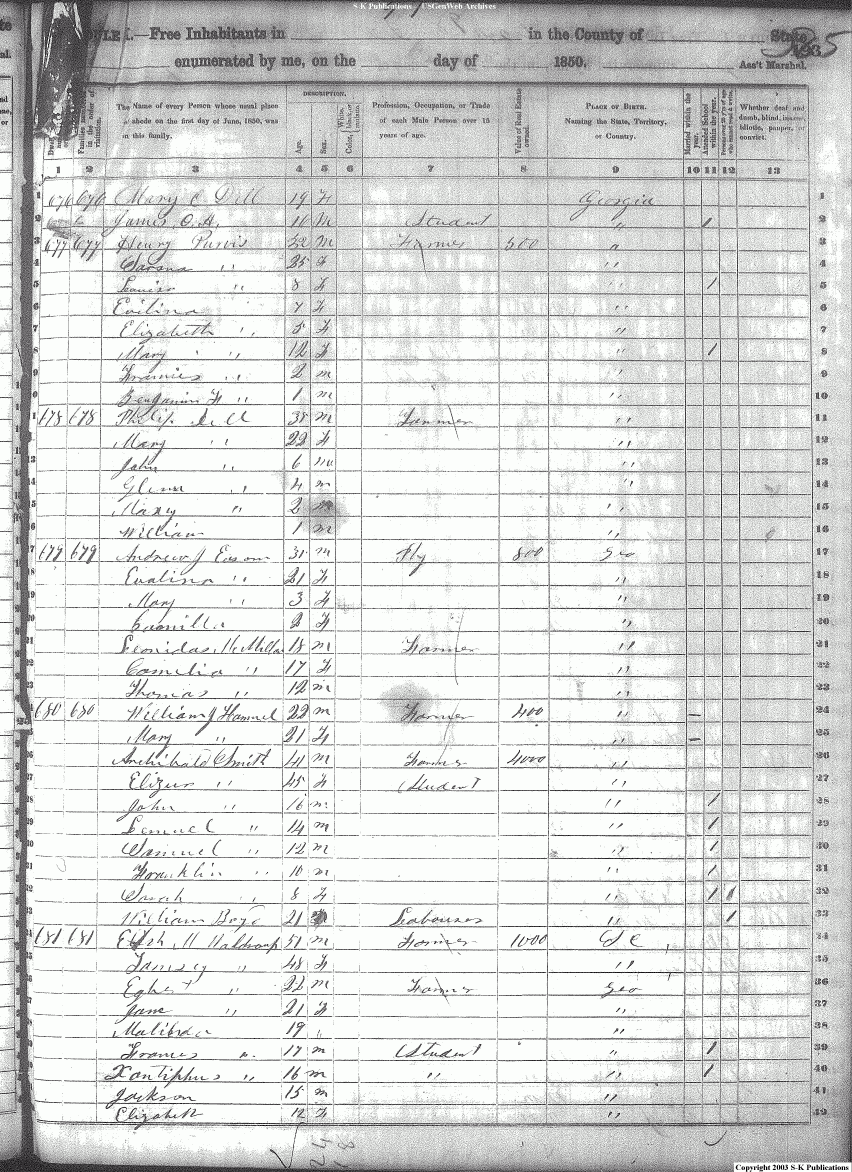 S-K Publications - USGenWeb Archives
SCHEDULE I.—Free Inhabitants in in the County of State
enumerated by me, on the day of 1850. Ass't Marshal.
The Name of every Person whose usual place of abode on the first day of June, 1850, was in this family.
DESCRIPTION.
Age.
Sex.
Profession, Occupation, or Trade of each Male Person over 15 years of age.
Value of Real Estate owned.
PLACE OF BIRTH. Naming the State, Territory, or Country.
Married within the year.
Attended School within the year.
Whether deaf and dumb, blind, insane, idiotic, pauper, or convict.
1 2 3 4 5 6 7 8 9 10 11 12 13
1 676 676 Mary C Dill 19 F Georgia 1
2 James O. A. 10 M Student " 1 2
3 677 677 Henry Purvis 32 m Farmer 500 " 3
4 " 25 F " 4
5 Louisa " 8 F " 1 5
6 Evilina 7 F " 6
7 Elizabeth " 5 F " 7
8 Mary " 12 F " 1 8
9 Francies " 2 m " 9
10 Benjamin F " 1 m " 10
11 678 678 Philip Dill 38 m Farmer " 11
12 Mary " 22 F " 12
13 John " 6 m " 13
14 Glenn " 4 m " 14
15 " 2 m " 15
16 William 1 m " 16
17 679 679 Andrew J Eason 31 m 800 Geo 17
18 Evalina " 21 F " 18
19 Mary " 3 F " 19
20 Camilla " 2 F " 20
21 Leonidas McMillan 18 m Farmer " 21
22 Cornelia " 17 F " 22
23 Thomas " 12 m " 23
24 680 680 William J Hammel 22 m Farmer 400 " — 24
25 Mary " 21 F " — 25
26 Archibald Smith 41 m Farmer 4000 " 26
27 " 45 F Student " 27
28 John " 16 m " 1 28
29 Lemuel " 14 m " 1 29
30 Samuel " 12 m " 1 30
31 Franklin " 10 m " 1 31
32 Sarah " 8 F " 1 1 32
33 William 21 Labourer " 1 33
34 681 681 M Waldroup 51 m Farmer 1000 S C 34
35 " 48 F " 35
36 Egbert " 22 m Farmer Geo 36
37 Jane " 21 F " 37
38 Malibra 19 " " 38
39 Frances " 17 m Student " 1 39
40 Xantiphus " 16 m " " 1 40
41 Jackson 15 m " 41
42 Elizabeth 12 F " 42
Copyright 2003 S-K Publications